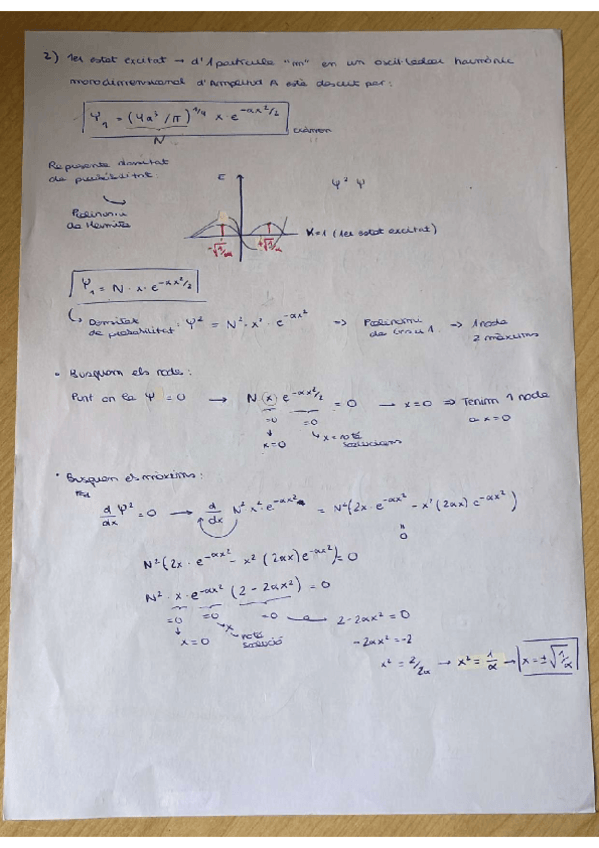 2) 1er estat excitat → d'1 partícula "m" en un oscil·lador harmònic
monodimensional d'Amplitud A està descrit per:
Ψ₁ = (4α³/π)^1/4 x · e^-αx²/2
N
Representa densitat
de probabilitat
Polinomi
de Hermite
E
Ψ² Ψ
V=1 (1er estat excitat)
-√1/α +√1/α
Ψ₁ = N · x · e^-αx²/2
Densitat
de probabilitat: Ψ² = N² · x² · e^-αx² ⇒ Polinomi
de Grau 1. → 1 node
2 màxims
• Busquem els node:
Punt on la Ψ = 0 → N x e^-αx²/2 = 0 → x=0 ⇒ Tenim 1 node
a x=0
=0 =0
x=0 x = no té
solucions
• Busquem els màxims:
d/dx Ψ² = 0 → d/dx N² x² e^-αx² = N² (2x · e^-αx² - x² (2αx) e^-αx²)
0
N² (2x · e^-αx² - x² (2αx) e^-αx²) = 0
N² · x · e^-αx² (2 - 2αx²) = 0
=0 =0 =0 2 - 2αx² = 0
x=0 no té
solució
-2αx² = -2
x² = 2/2α → x² = 1/α → x = ±√1/α